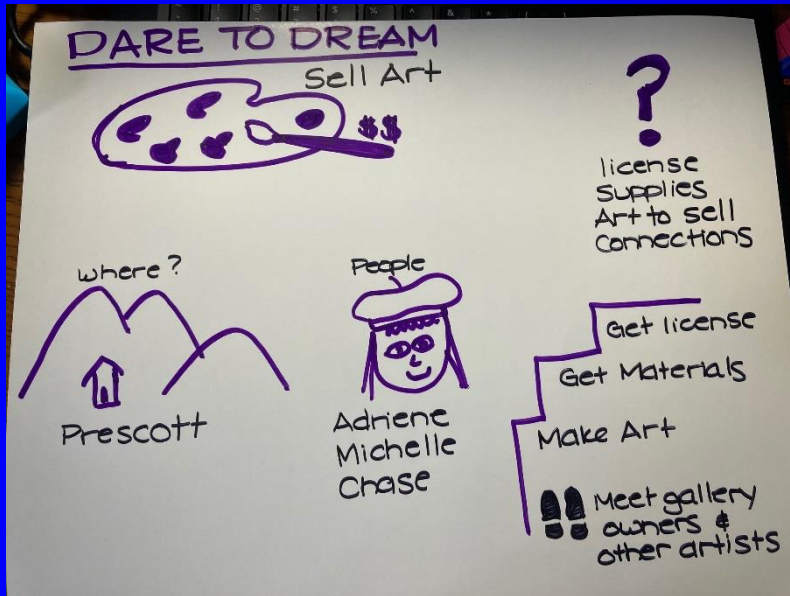 DARE TO DREAM
Sell Art
$$
?
license
supplies
Art to sell
Connections
where?
Prescott
People
Adriene
Michelle
Chase
Get license
Get Materials
Make Art
Meet gallery
owners &
other artists